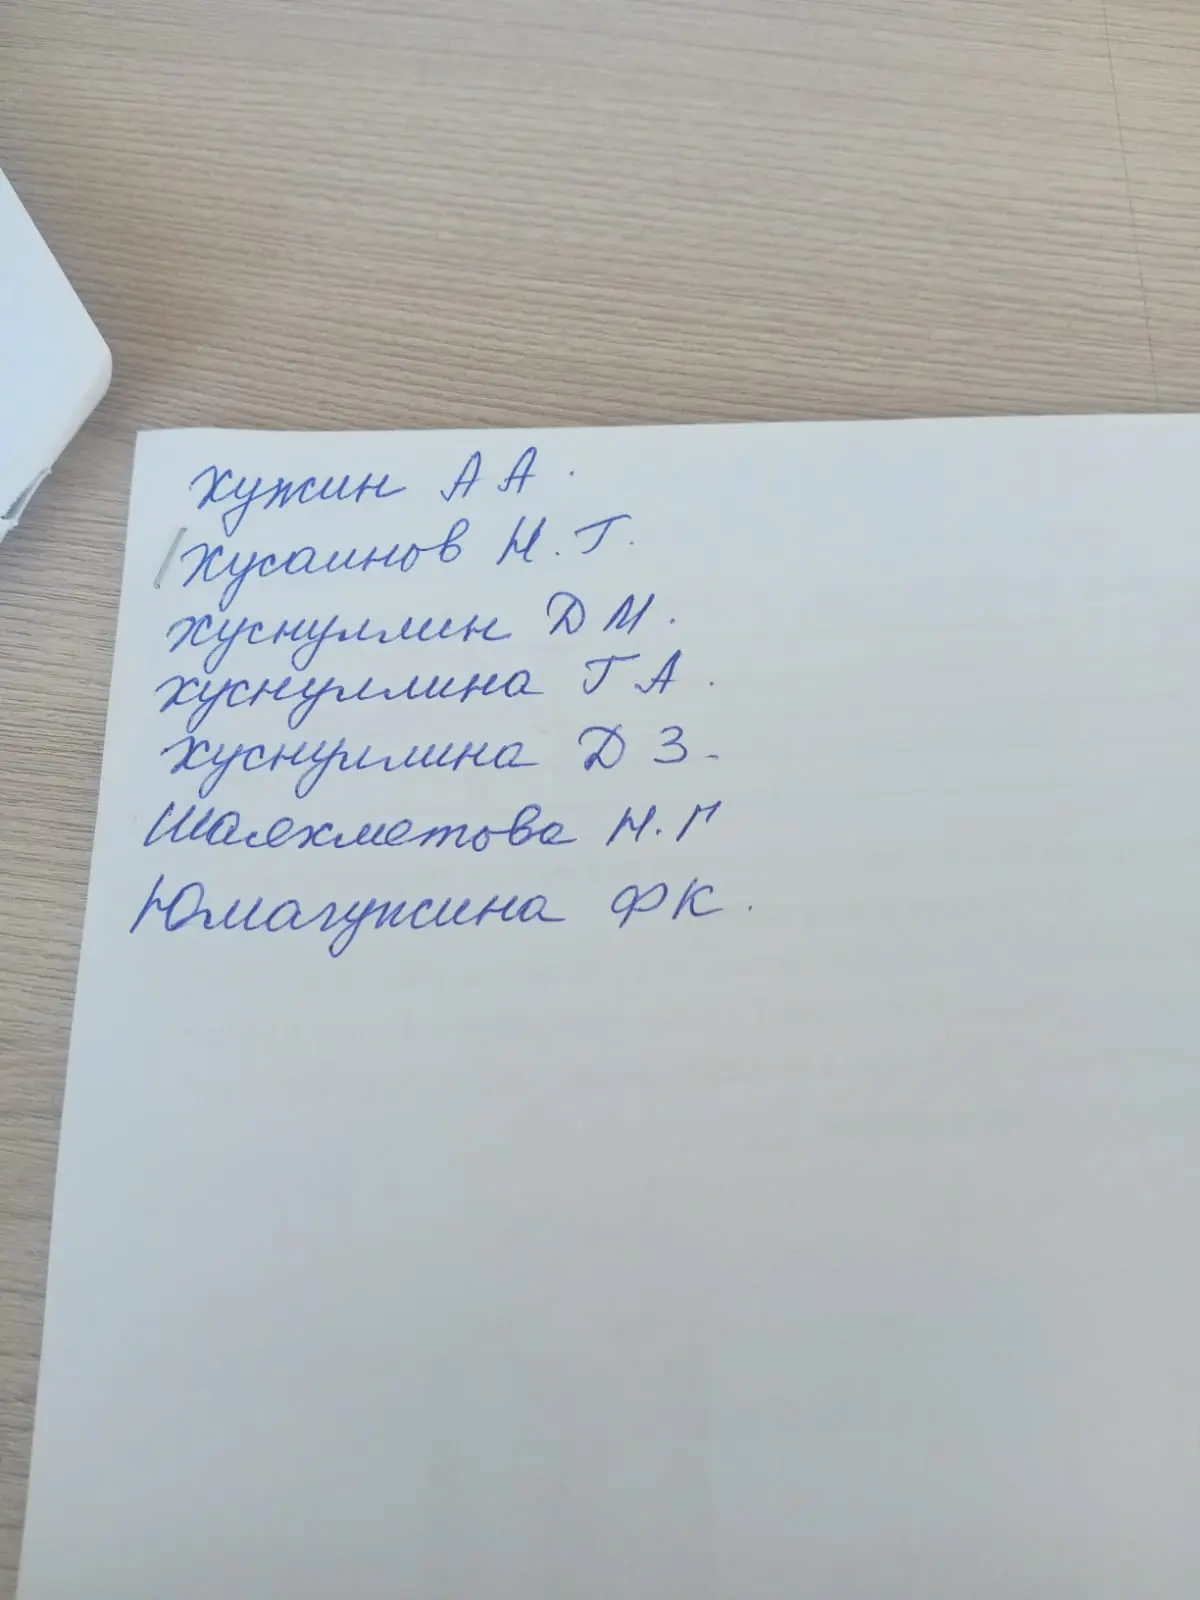 Хужин А А.
Хусаинов Н. Г.
Хуснуллин Д М.
Хуснуллина Г А.
Хуснуллина Д З.
Шаяхметова Н. Г
Юмагужина Ф К.